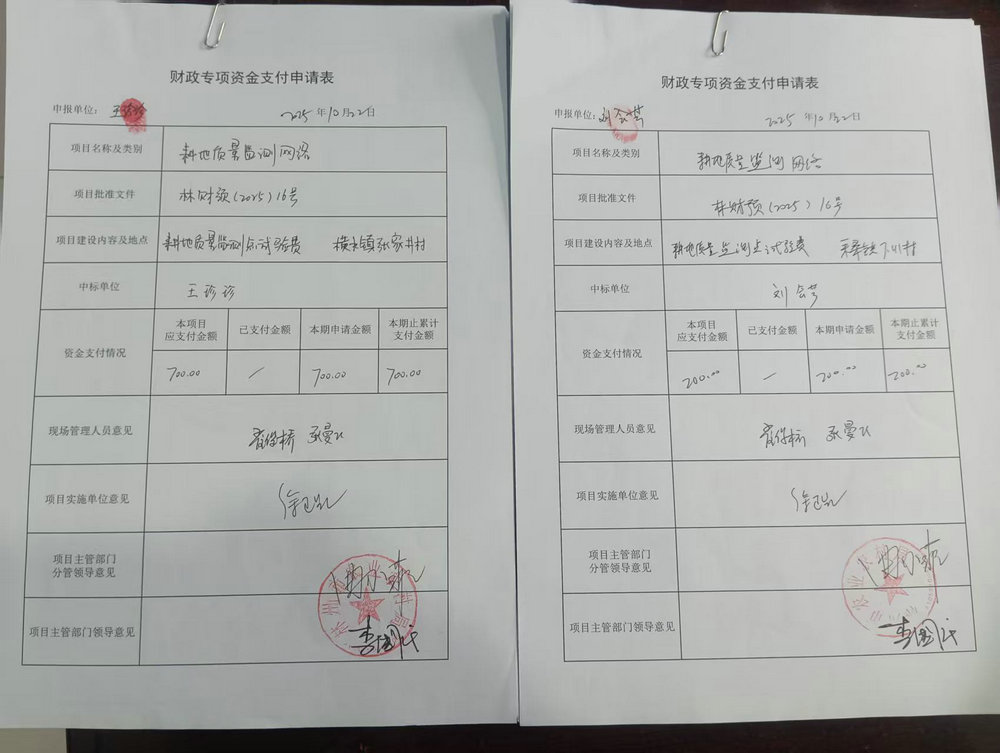 财政专项资金支付申请表
申报单位: 王珍珍 2025年10月22日
项目名称及类别 耕地质量监测网络
项目批准文件 林财预(2025)16号
项目建设内容及地点 耕地质量监测点试验费 横水镇张家井村
中标单位 王珍珍
资金支付情况
本项目应支付金额 已支付金额 本期申请金额 本期止累计支付金额
700.00 / 700.00 700.00
现场管理人员意见
项目实施单位意见
项目主管部门
分管领导意见
项目主管部门领导意见
财政专项资金支付申请表
申报单位: 刘会芳 2025年10月22日
项目名称及类别 耕地质量监测网络
项目批准文件 林财预(2025)16号
项目建设内容及地点 耕地质量监测点试验费
中标单位 刘会芳
资金支付情况
本项目应支付金额 已支付金额 本期申请金额 本期止累计支付金额
200.00 — 200.00 200.00
现场管理人员意见
项目实施单位意见
项目主管部门
分管领导意见
项目主管部门领导意见